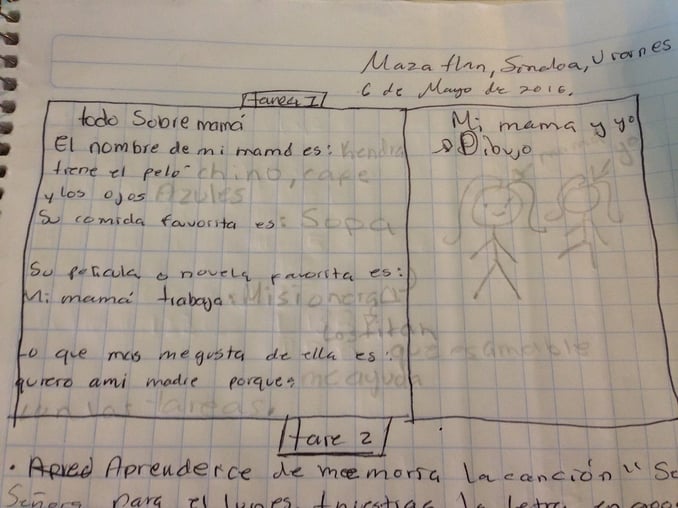 Mazatlan, Sinaloa, Viernes
6 de Mayo de 2016.
tarea 1
todo Sobre mamá
El nombre de mi mamá es: Kendra
tiene el pelo chino, cafe
y los ojos Azules
Su comida favorita es: Sopa
Su pelicula o novela favorita es:
Mi mamá trabaja: Misionera
Lo que mas me gusta de ella es: que es amable
quiero ami madre porque: me ayuda
con las tareas.
Mi mama y yo
Dibujo
mama
yo
tare 2
• Apred Aprenderce de meemoria la canción "Se
Señora para el lunes